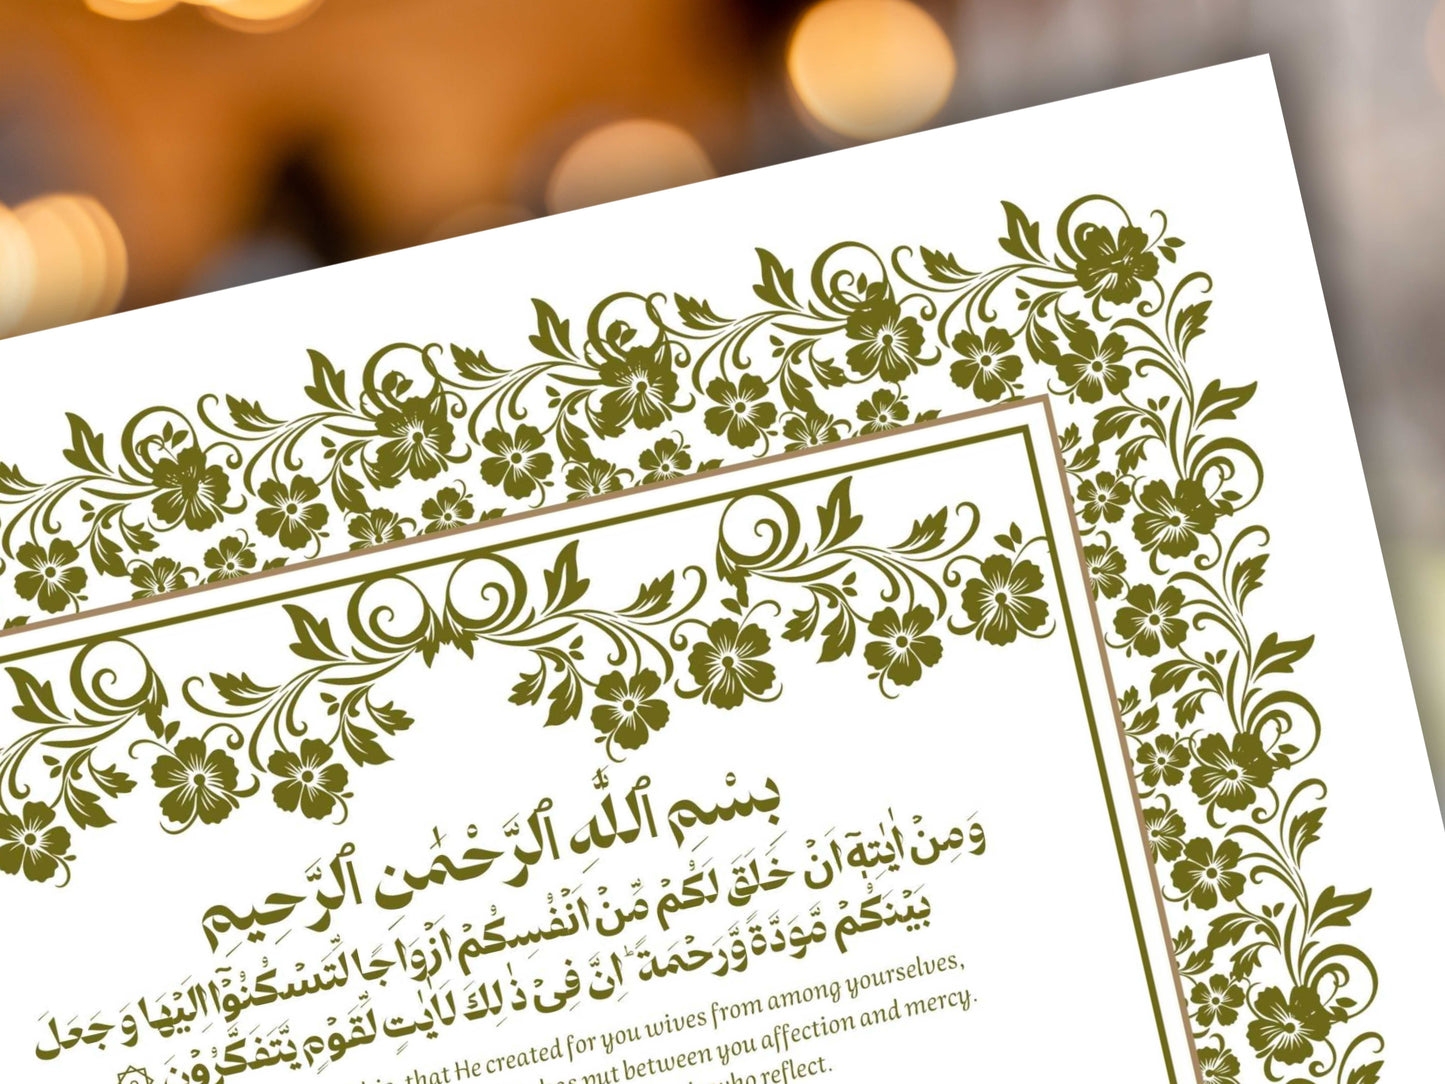 بِسْمِ ٱللَّهِ ٱلرَّحْمَٰنِ ٱلرَّحِيمِ
وَمِنْ اٰيٰتِهٖٓ اَنْ خَلَقَ لَكُمْ مِّنْ اَنْفُسِكُمْ اَزْوَاجًا لِّتَسْكُنُوْٓا اِلَيْهَا وَجَعَلَ
بَيْنَكُمْ مَّوَدَّةً وَّرَحْمَةً ؕ اِنَّ فِيْ ذٰلِكَ لَاٰيٰتٍ لِّقَوْمٍ يَّتَفَكَّرُوْنَ
that He created for you wives from among yourselves,
put between you affection and mercy.
who reflect.